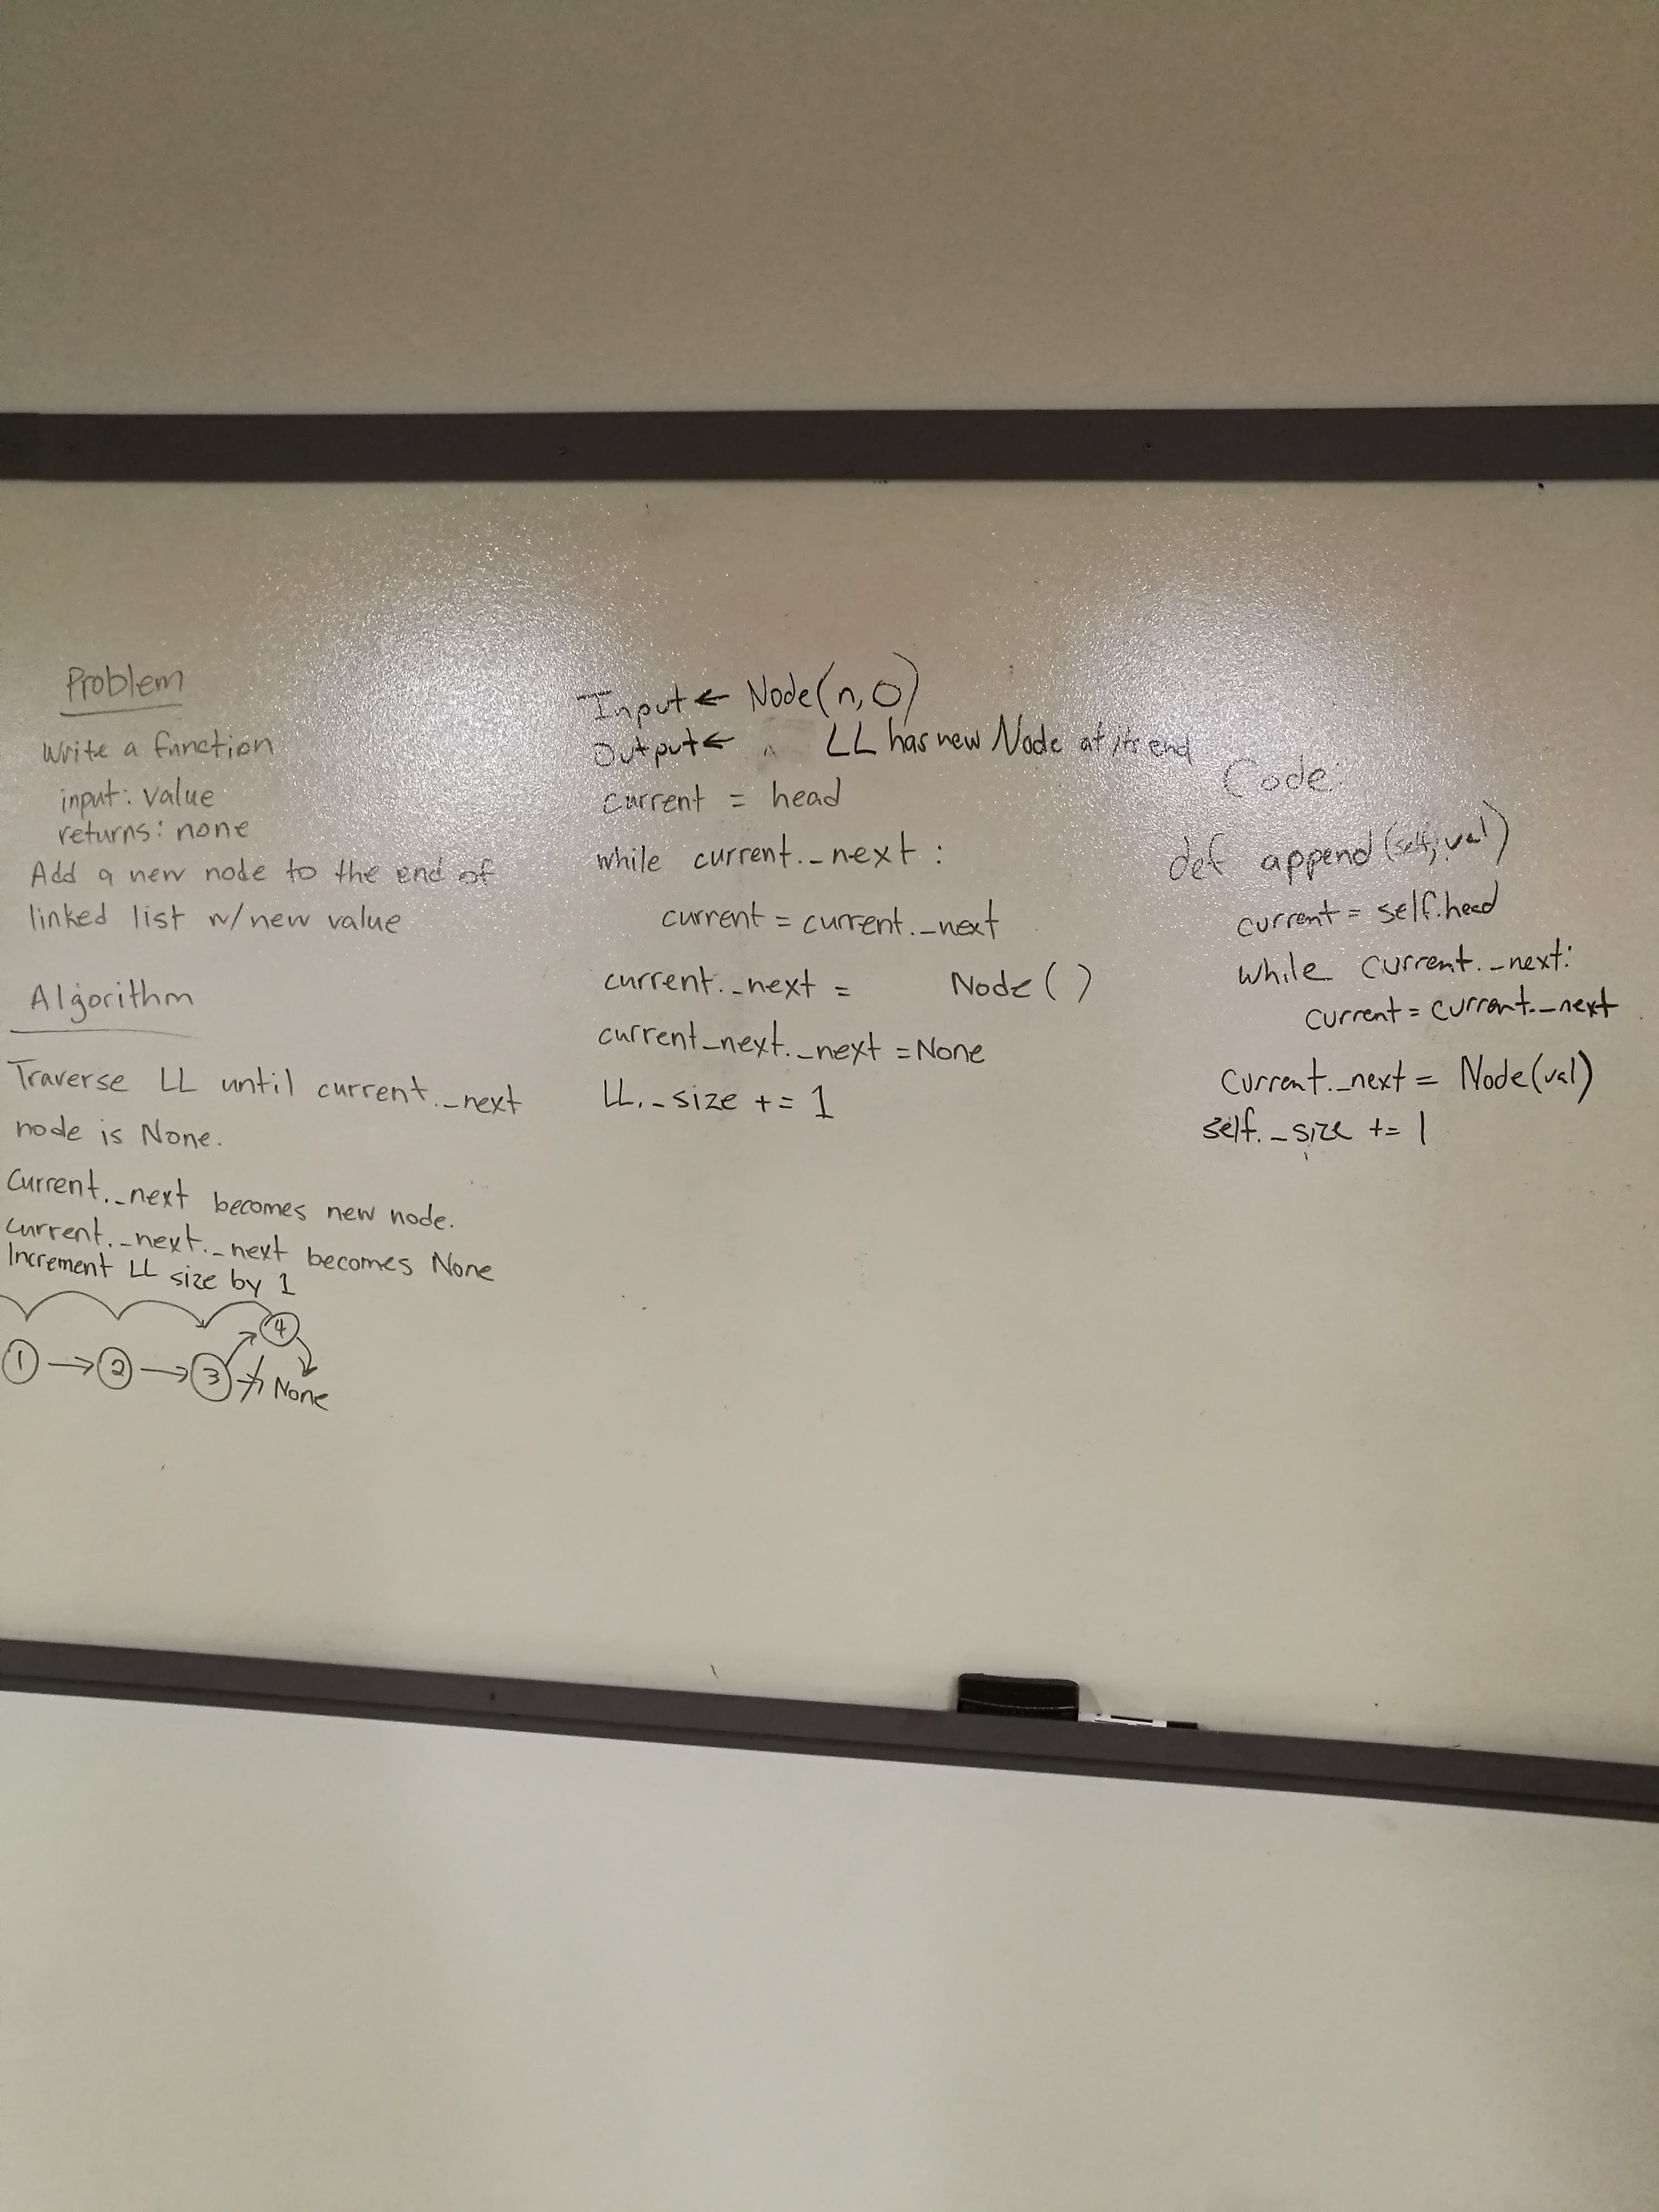 Problem
Write a function
input: value
returns: none
Add a new node to the end of
linked list w/new value
Algorithm
Traverse LL until current._next
node is None.
Current._next becomes new node.
current._next._next becomes None
Increment LL size by 1
4
1 → 2 → 3 → None
Input ← Node(n,0)
Output ← LL has new Node at its end
current = head
while current._next :
current = current._next
current._next = Node ( )
current_next._next = None
LL._size += 1
Code:
def append(self, val)
current = self.head
while current._next:
current = current._next
Current._next = Node(val)
self._size += 1